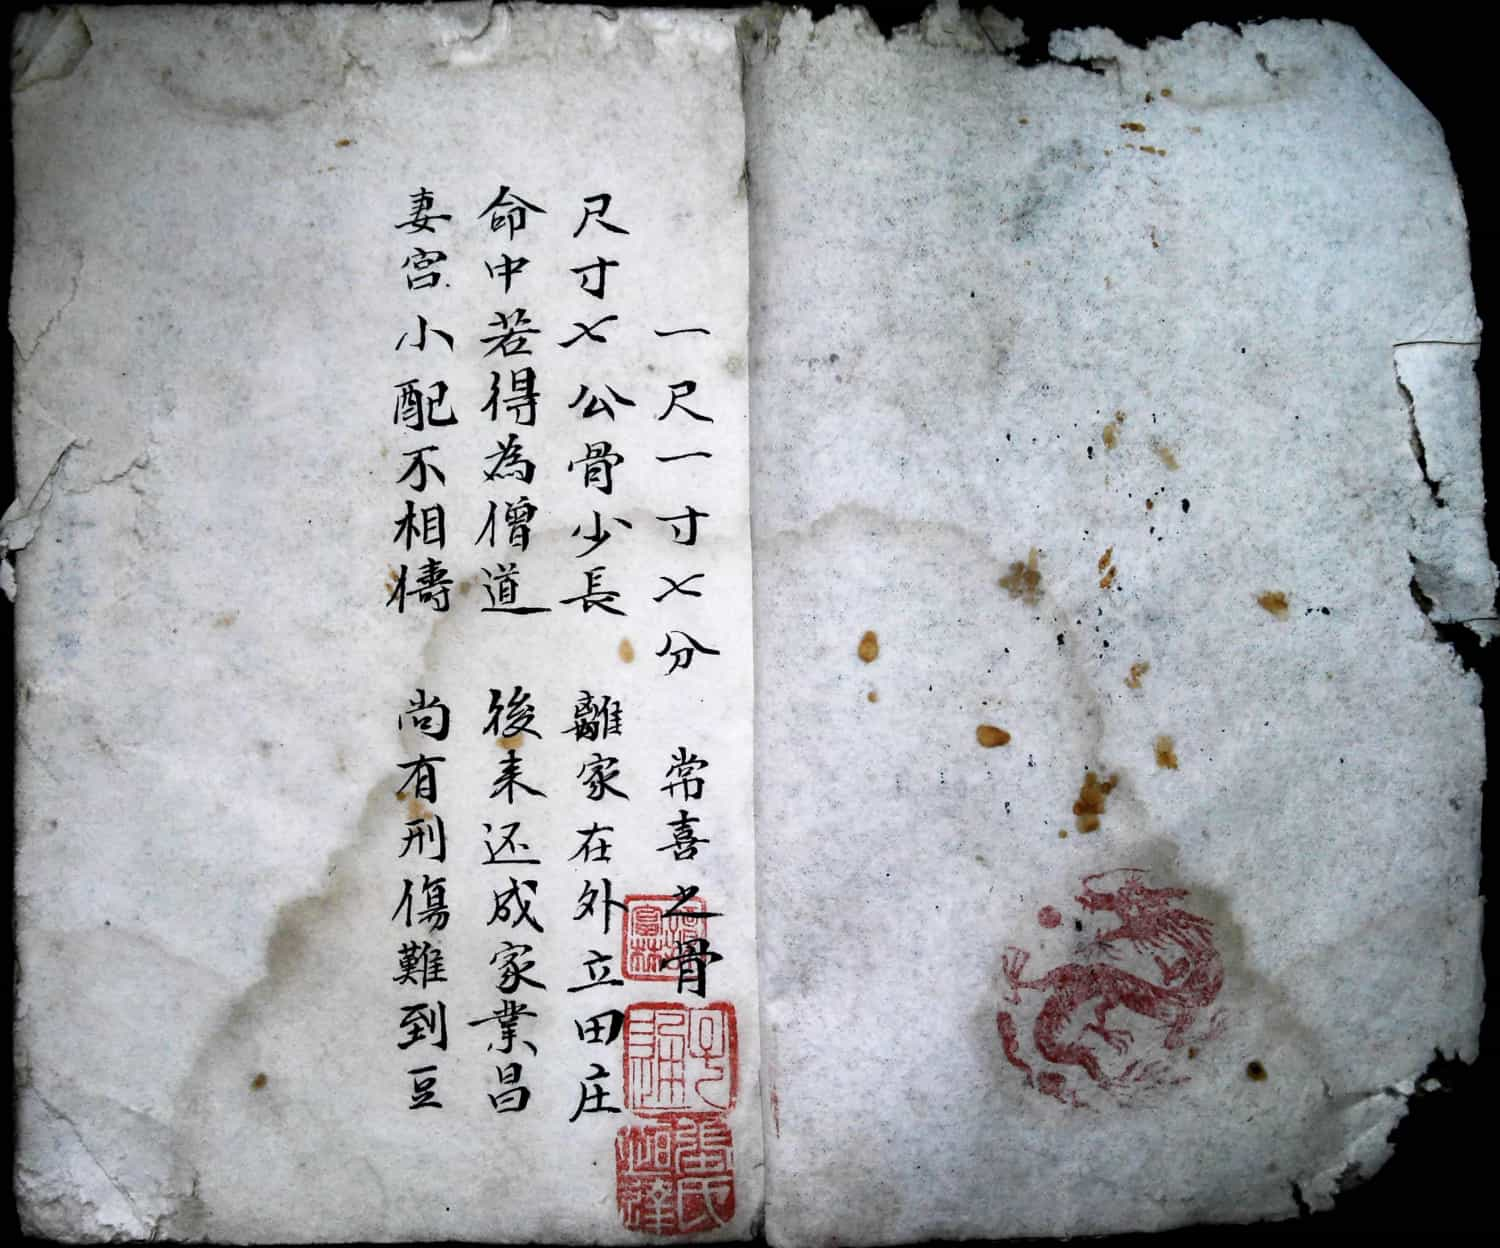 一尺一寸七分 常喜之骨
尺寸七公骨少長 離家在外立田庄
命中若得為僧道 後来还成家業昌
妻宫小配不相儔 尚有刑傷難到豆